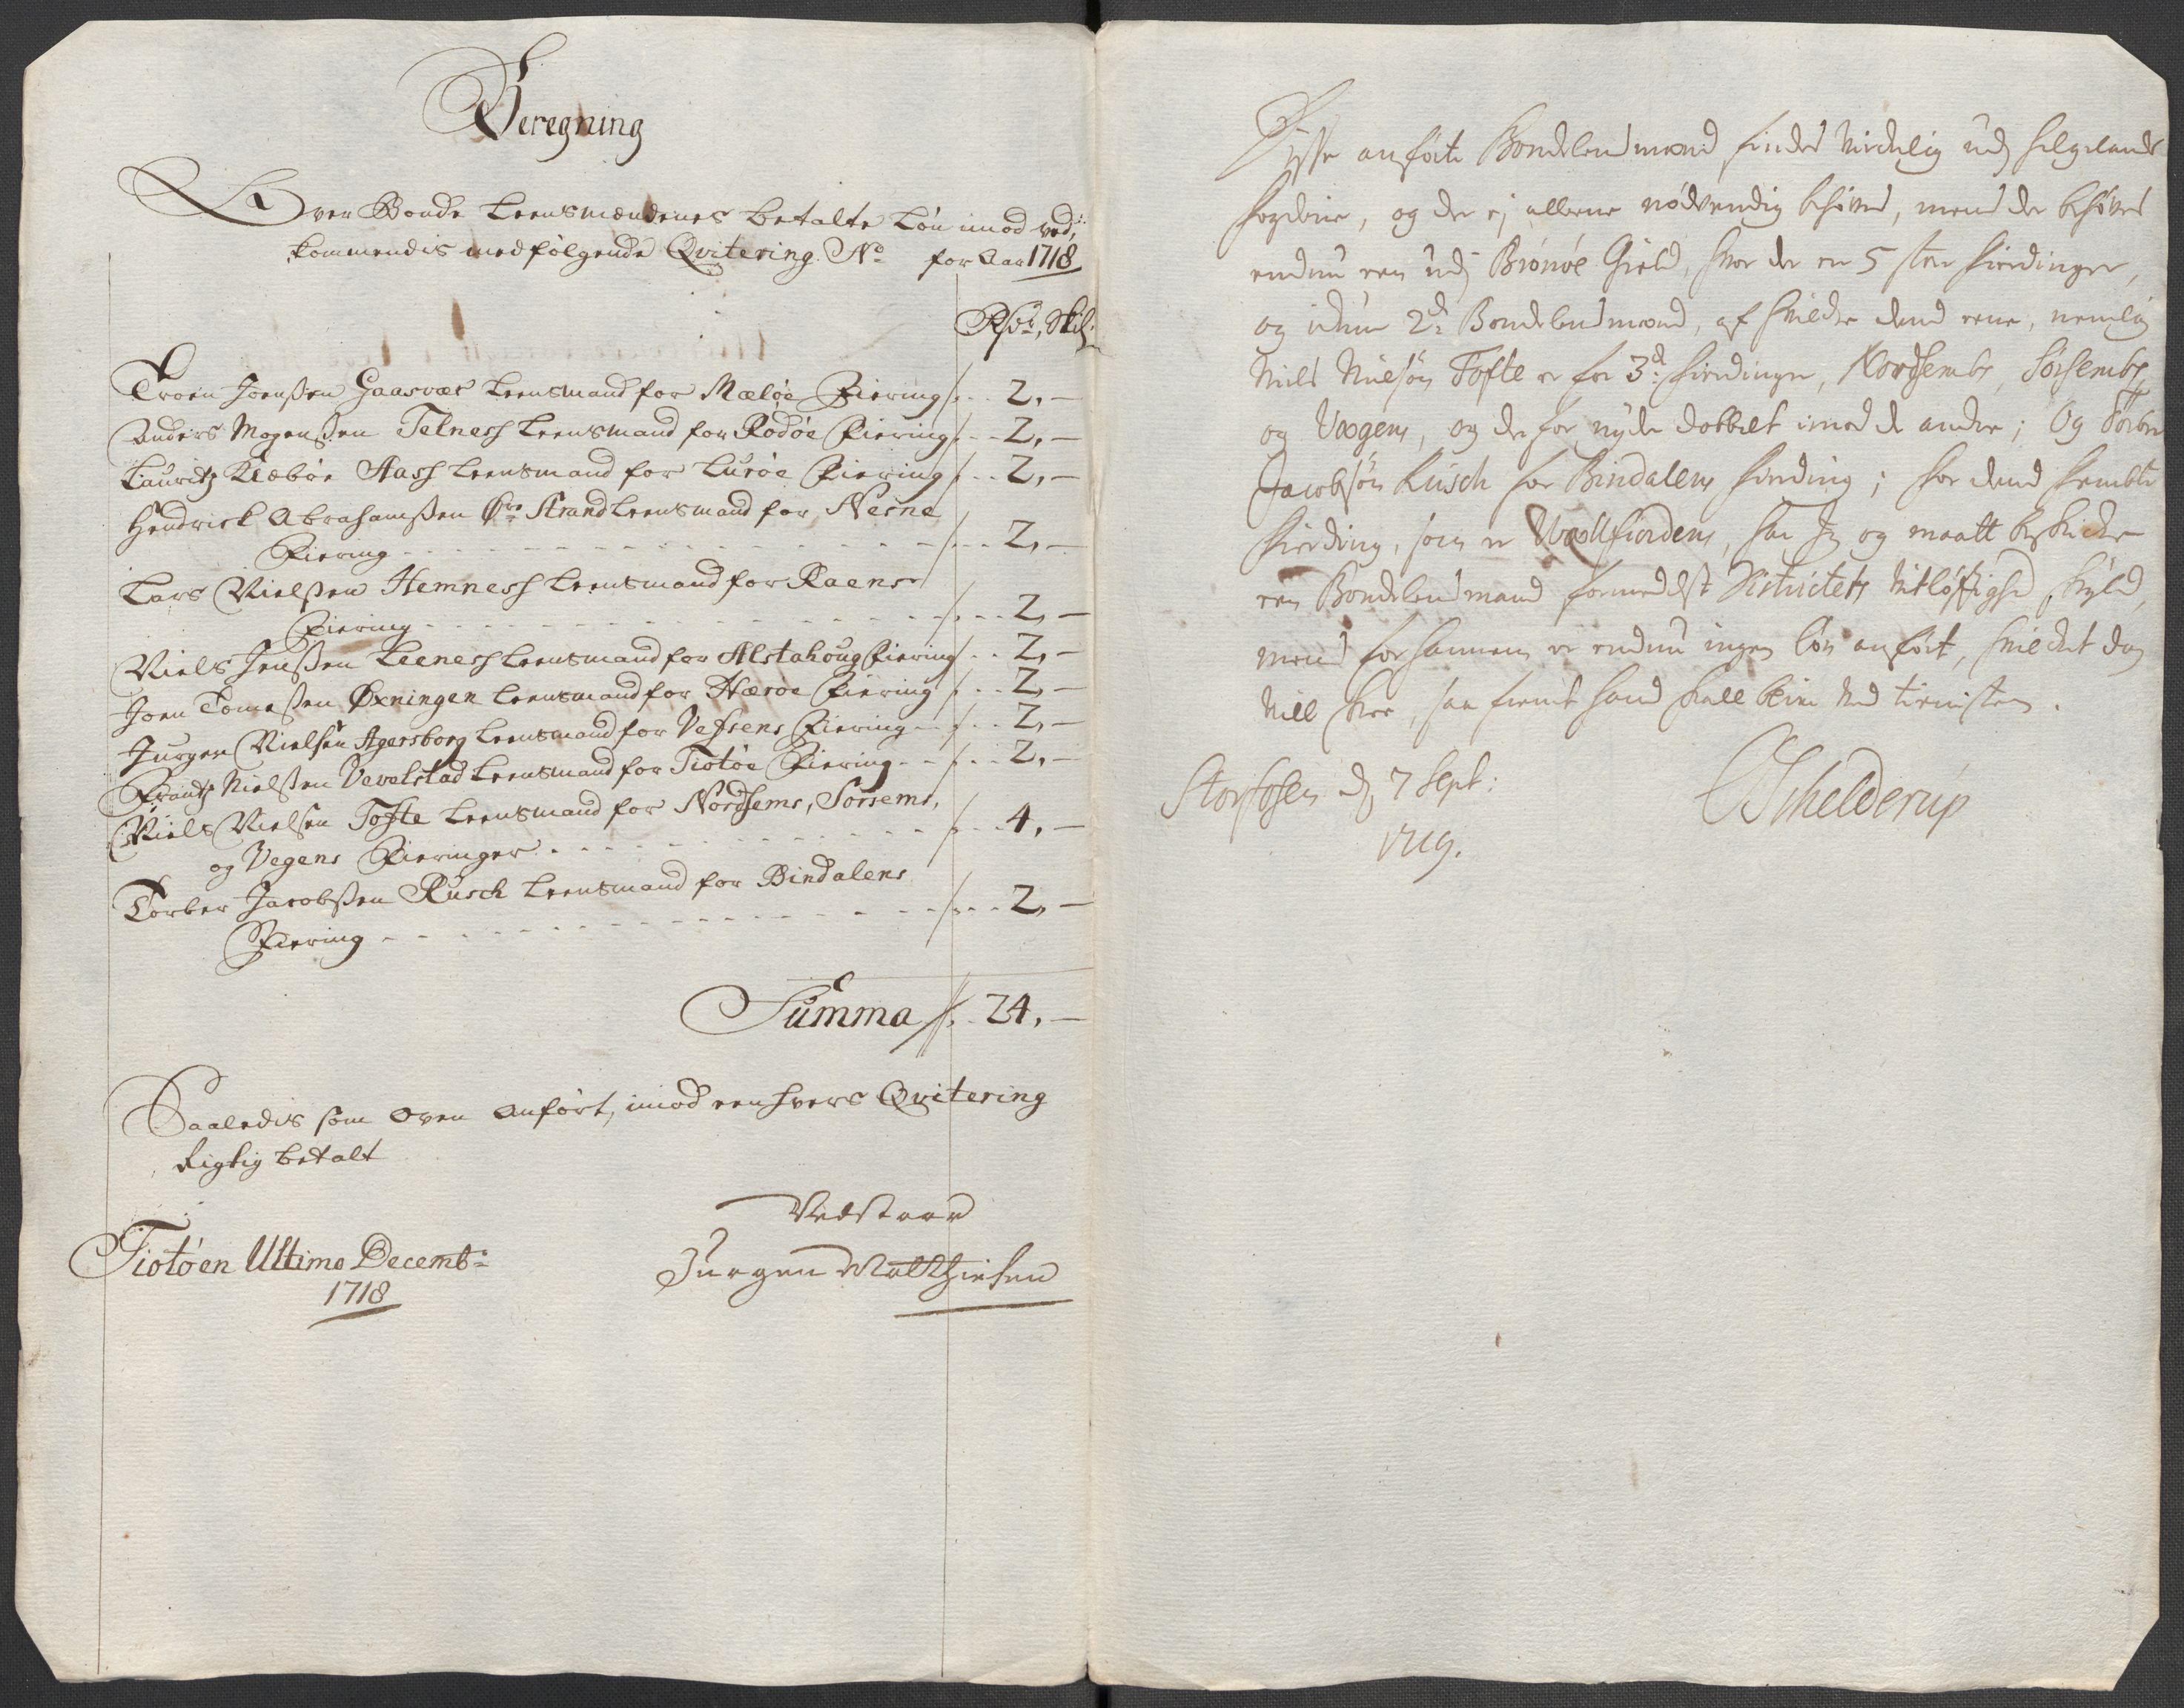 Beregning
Over Bonde Leensmændenes betalte Løn imod ved,,
kommendis medfølgende Qvitering No for Aar 1718
Rhdr, Skil:
Troen Joenssen Gaasvær Leensmand for Meløe Fiering 2, —
Anders Mogenssen Telnesh Leensmand for Rodøe Fiering 2, —
Lauritz Klæboe Aash Leensmand for Lurøe Fiering 2, —
Hendrich Abrahamssen Strand Leensmand for Nesne
Fiering 2, —
Lars Nielssen Hemnesh Leensmand for Raens
Fiering 2, —
Niels Jenssen Leenesh Leensmand for Alstahoug Fiering 2, —
Joen Tomessen Øxningen Leensmand for Herøe Fiering 2, —
Jurgen Nielsen Agersborg Leensmand for Vefsens Fiering 2, —
Frantz Nielssen Vevelstad Leensmand for Tiøtøe Fiering 2, —
Niels Nielsen Tofte Leensmand for Nordhems, Sørhems,
og Vegens Fieringer 4, —
Torber Jacobssen Rusch Leensmand for Bindalens
Fiering 2, —
Summa 24, —
Saaledis som oven anført, imod eenhvers Qvitering
Rigtig betalt
Tiøtøen Ultimo Decembr:
1718
Vedstaar
Jurgen Matthiesen
Disse anførte Bondelensmænd findes Virkelig udj Helgelands
Fogderie, og der ej alleene nødvendig behøves, mens der behøves
endnu een udj Brønøe Gield, hvor der er 5 store Fierdinger,
og ickun 2de Bondelensmænd, af hvilcke dend eene, nemlig
Niels Nielsøn Tofte er for 3de Fierdinger, Nordhembs, Sørhembs
og Vægens, og derfor nyder dobbelt imod de andre; Og Torber
Jacobsøn Rusch for Bindalens Fierding; for dend fembte
Fierding, som er Wælfiordens, har Jeg og maatt beskicke
een Bondelensmand formedelst Districtets Vitløftighed skyld,
mens for hannem er endnu ingen løn anført, hvilcket dog
vill skee, saa fremt hand skall blive ved tienisten.
Storfosen d. 7 Sept:
1719.
Schelderup